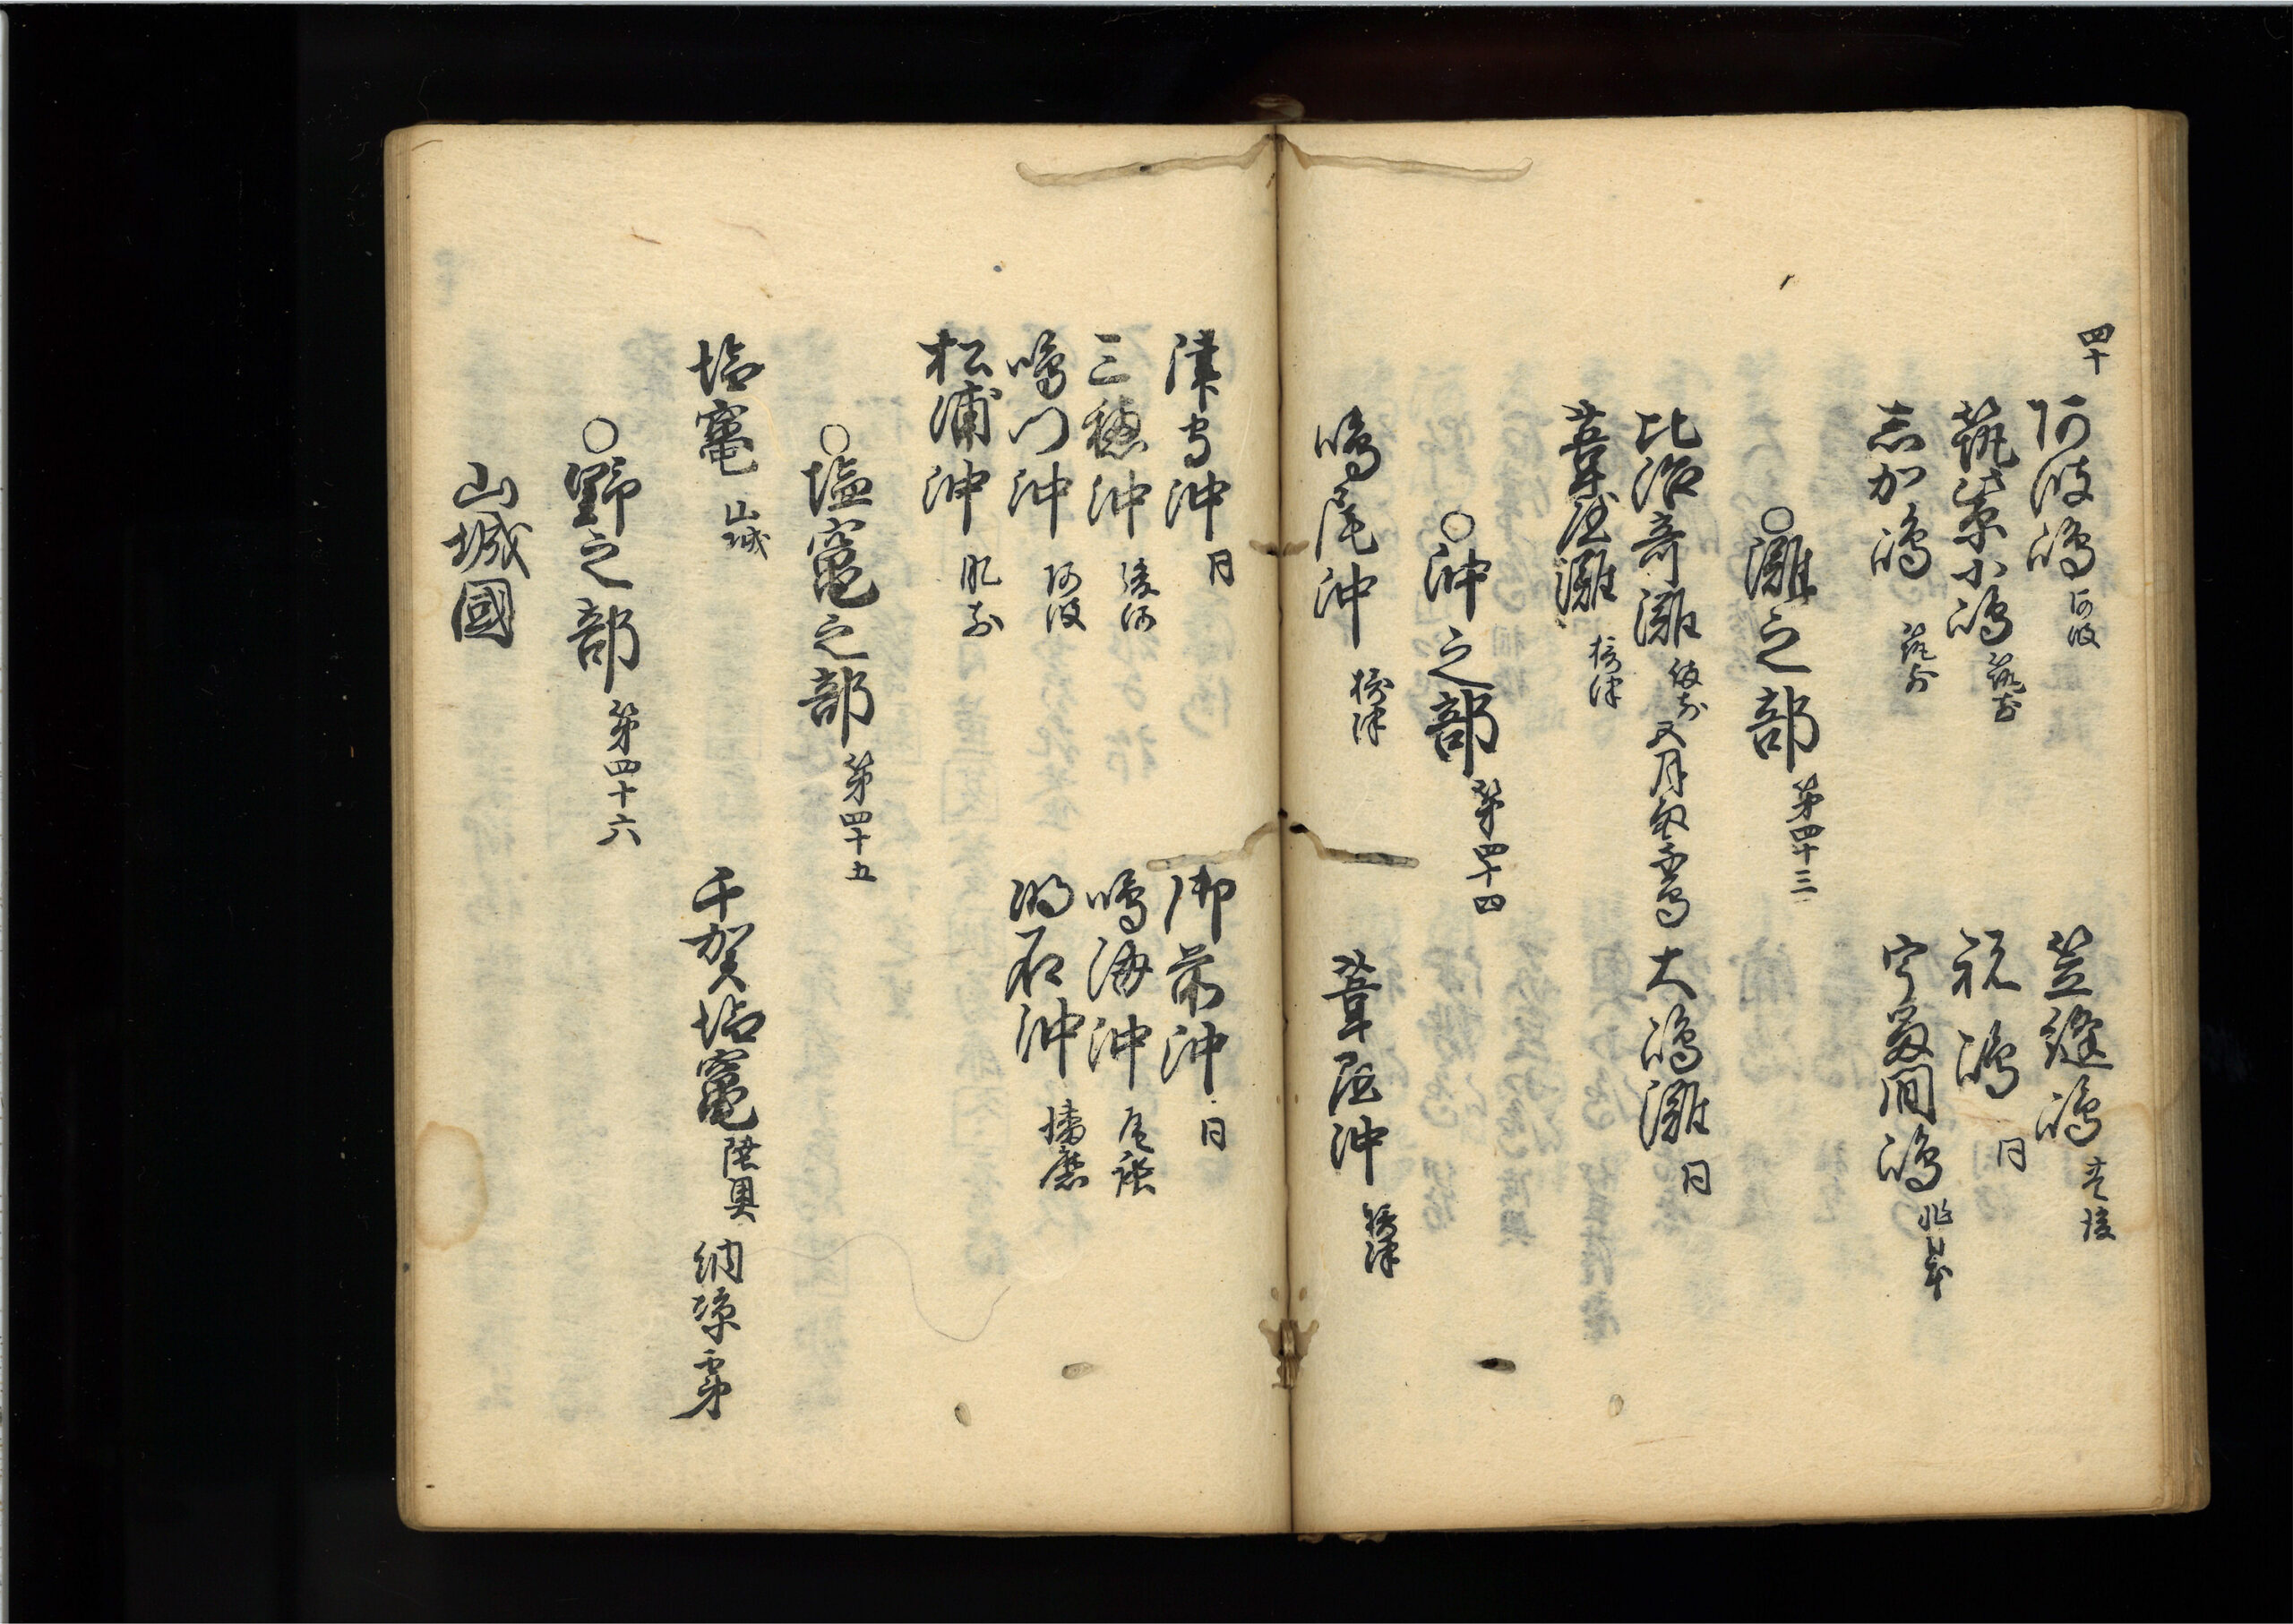 四十
阿波嶋 阿波 笠縫嶋
筑紫小嶋 筑前 祝嶋 同
志加嶋 筑前 宇多間嶋
○灘之部 第四十三
比治奇灘 大嶋灘 同
葦屋灘 摂津
○沖之部 第四十四
鳴尾沖 摂津 葦屋沖 摂津
津守沖 同 御前沖 同
三穂沖 駿河 鳴海沖 尾張
鳴門沖 阿波 明石沖 播磨
松浦沖 肥前
○塩竈之部 第四十五
塩竈 山城 千賀塩竈 陸奥 納凉
○野之部 第四十六
山城國